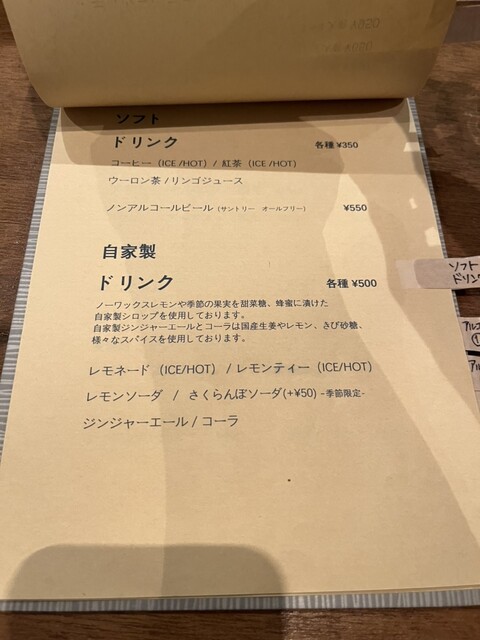 ソフト
ドリンク 各種 ¥350
コーヒー（ICE /HOT）/ 紅茶（ICE /HOT）
ウーロン茶 / リンゴジュース
ノンアルコールビール（サントリー　オールフリー） ¥550
自家製
ドリンク 各種 ¥500
ノーワックスレモンや季節の果実を甜菜糖、蜂蜜に漬けた
自家製シロップを使用しております。
自家製ジンジャーエールとコーラは国産生姜やレモン、きび砂糖、
様々なスパイスを使用しております。
レモネード（ICE/HOT）/ レモンティー（ICE/HOT）
レモンソーダ / さくらんぼソーダ(+¥50) -季節限定-
ジンジャーエール / コーラ
ソフト
ドリンク